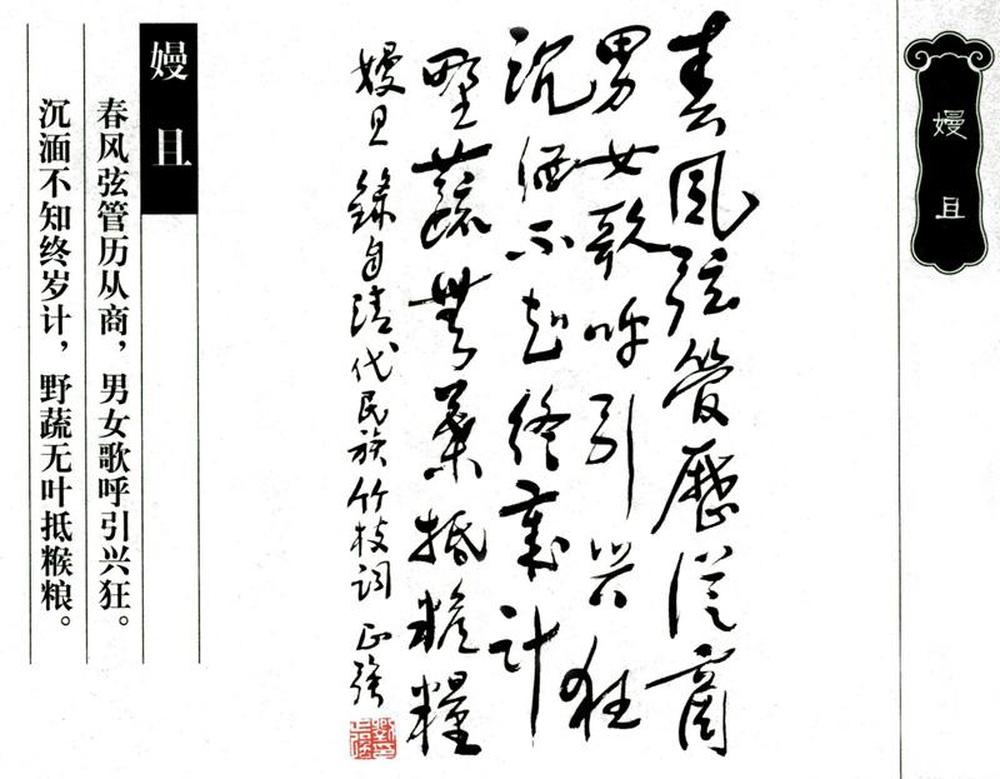 嫚且
春風弦管歷從商
男女歌呼引兴狂
沉湎不知終歲計
野蔬無葉抵糇糧
嫚且 錄自清代民族竹枝词 正强
嫚且
春风弦管历从商，男女歌呼引兴狂。
沉湎不知终岁计，野蔬无叶抵糇粮。